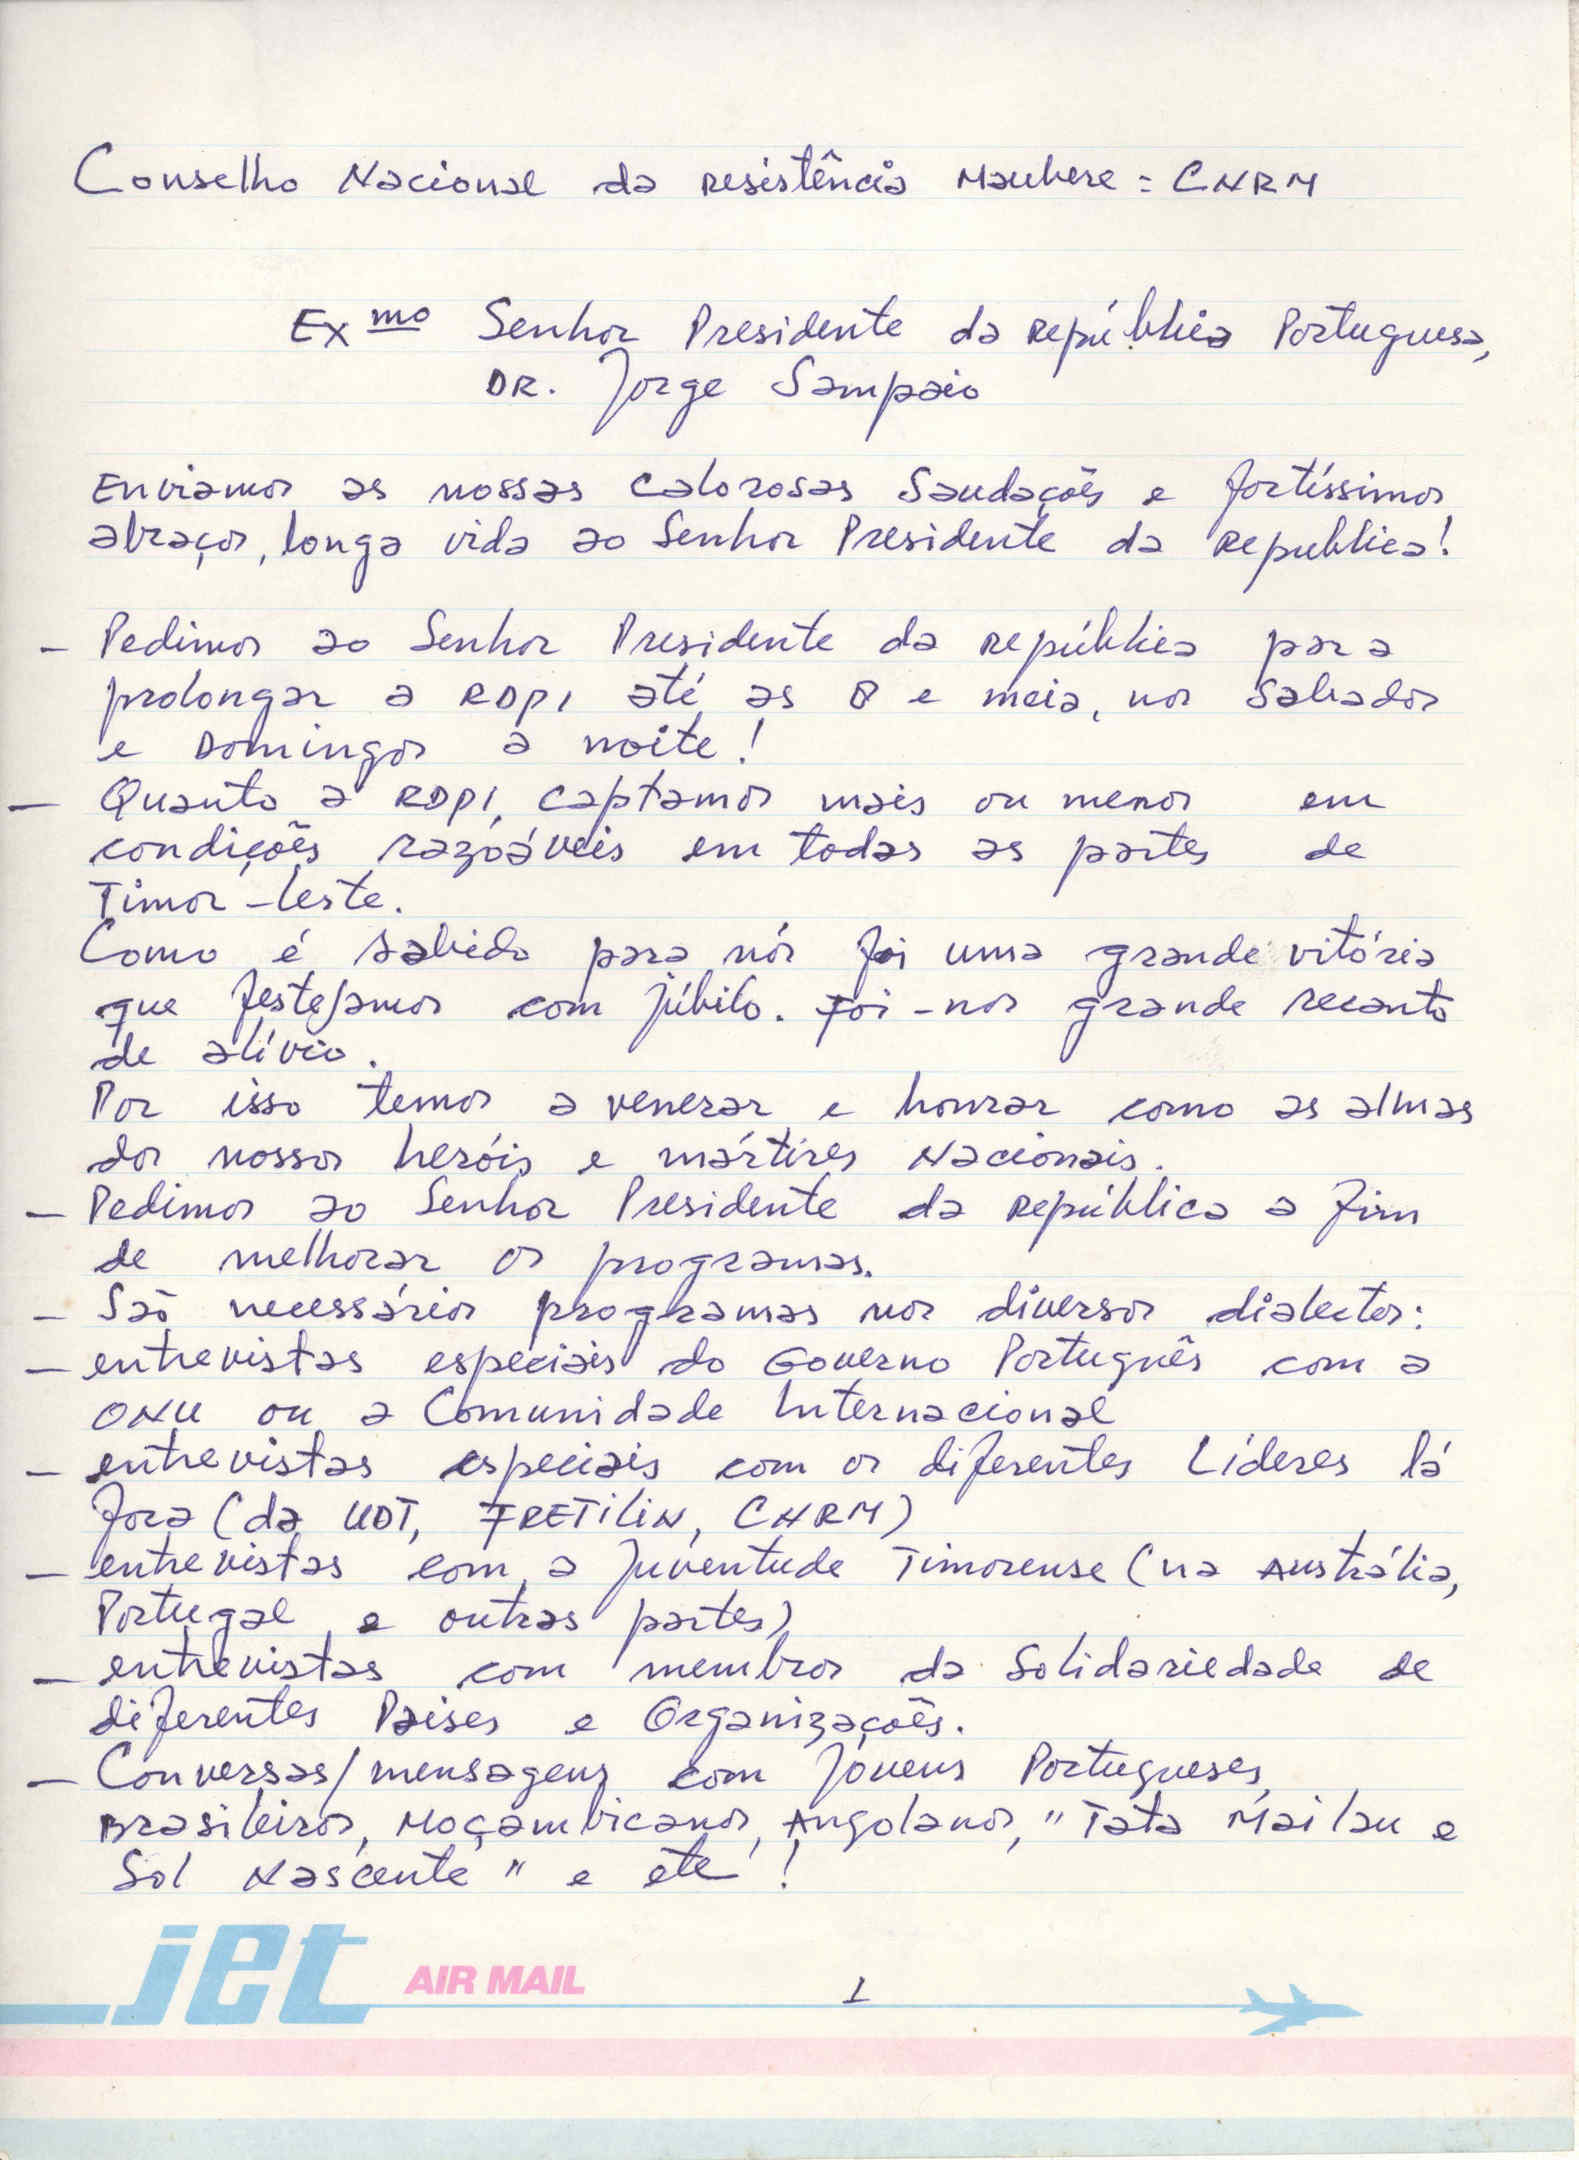 Conselho Nacional da resistência Maubere = CNRM
Exmo Senhor Presidente da República Portuguesa,
DR. Jorge Sampaio
Enviamos as nossas calorosas Saudações e fortíssimos
abraços, longa vida ao Senhor Presidente da Republica!
- Pedimos ao Senhor Presidente da república para
prolongar a RDPI até as 8 e meia, nos Sabados
e Domingos a noite!
- Quanto a RDPI, captamos mais ou menos em
condições razoáveis em todas as partes de
Timor-leste.
Como é sabido para nós foi uma grande vitória
que festejamos com júbilo. Foi-nos grande recanto
de alívio.
Por isso temos a venerar e honrar como as almas
dos nossos heróis e mártires Nacionais.
- Pedimos ao Senhor Presidente da República a fim
de melhorar os programas.
- São necessários programas nos diversos dialectos:
- entrevistas especiais do Governo Português com a
ONU ou a Comunidade Internacional
- entrevistas especiais com os diferentes Líderes lá
fora (da UDT, FRETiliN, CNRM)
- entrevistas com a Juventude Timorense (na Austrália,
Portugal e outras partes)
- entrevistas com membros da Solidariedade de
diferentes Paises e Organizações.
- Conversas/mensagens com Jóvens Portugueses,
Brasileiros, Moçambicanos, Angolanos, "Tata Mailau e
Sol Nascente" e etc!
jet AIR MAIL
1